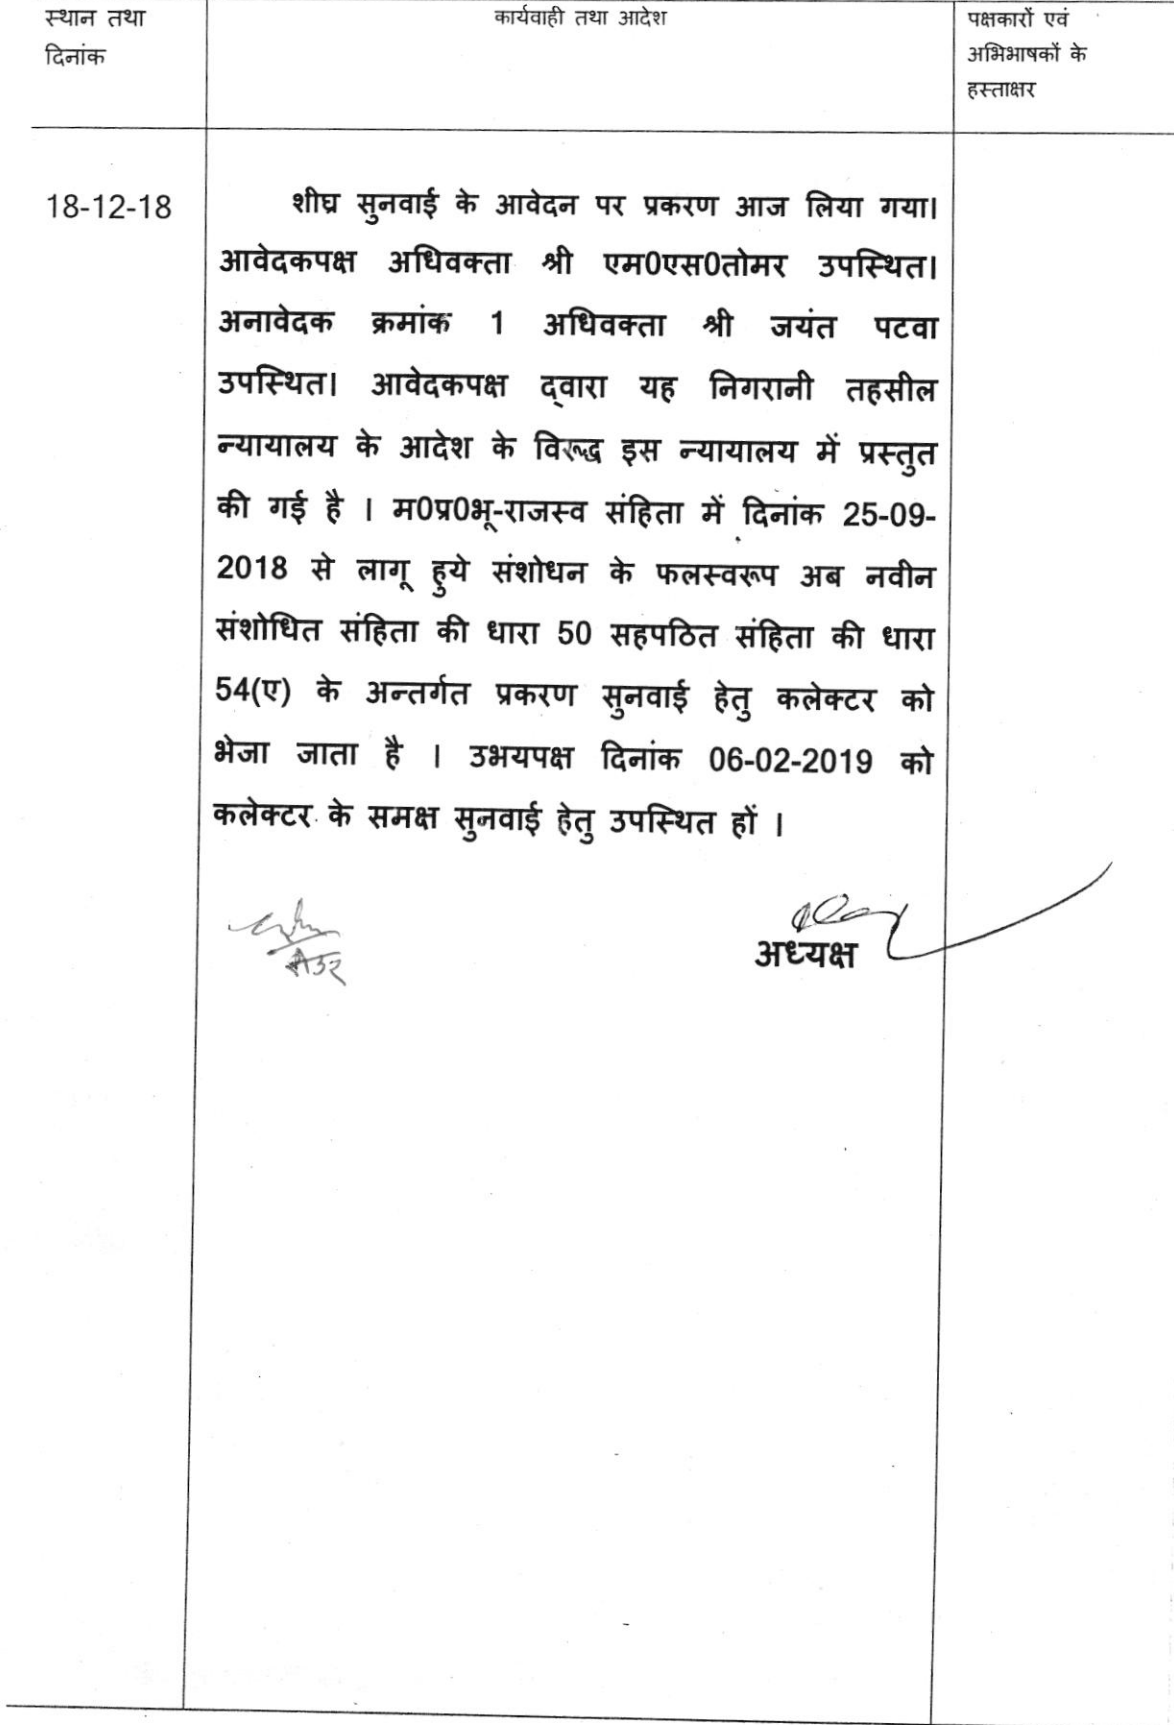 स्थान तथा
दिनांक
कार्यवाही तथा आदेश
पक्षकारों एवं
अभिभाषकों के
हस्ताक्षर
18-12-18
शीघ्र सुनवाई के आवेदन पर प्रकरण आज लिया गया।
आवेदकपक्ष अधिवक्ता श्री एम0एस0तोमर उपस्थित।
अनावेदक क्रमांक 1 अधिवक्ता श्री जयंत पटवा
उपस्थित। आवेदकपक्ष द्वारा यह निगरानी तहसील
न्यायालय के आदेश के विरूद्ध इस न्यायालय में प्रस्तुत
की गई है । म0प्र0भू-राजस्व संहिता में दिनांक 25-09-
2018 से लागू हुये संशोधन के फलस्वरूप अब नवीन
संशोधित संहिता की धारा 50 सहपठित संहिता की धारा
54(ए) के अन्तर्गत प्रकरण सुनवाई हेतु कलेक्टर को
भेजा जाता है । उभयपक्ष दिनांक 06-02-2019 को
कलेक्टर के समक्ष सुनवाई हेतु उपस्थित हों ।
अध्यक्ष